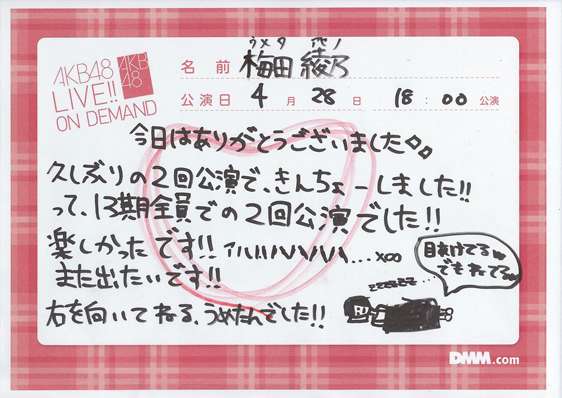 AKB48
LIVE!!
ON DEMAND
AKB
48
ウメタ アヤノ
名前 梅田 綾乃
公演日 4月 28日 18:00公演
今日はありがとうございました
久しぶりの2回公演で、きんちょーしました!!
って、13期全員での2回公演でした!!
楽しかったです!! アハハハハハハハ...xoo
また出たいです!!
右を向いてねる、うめたんでした!!
目あけてるw
でもねてるw
zzzzzz...
DMM.com